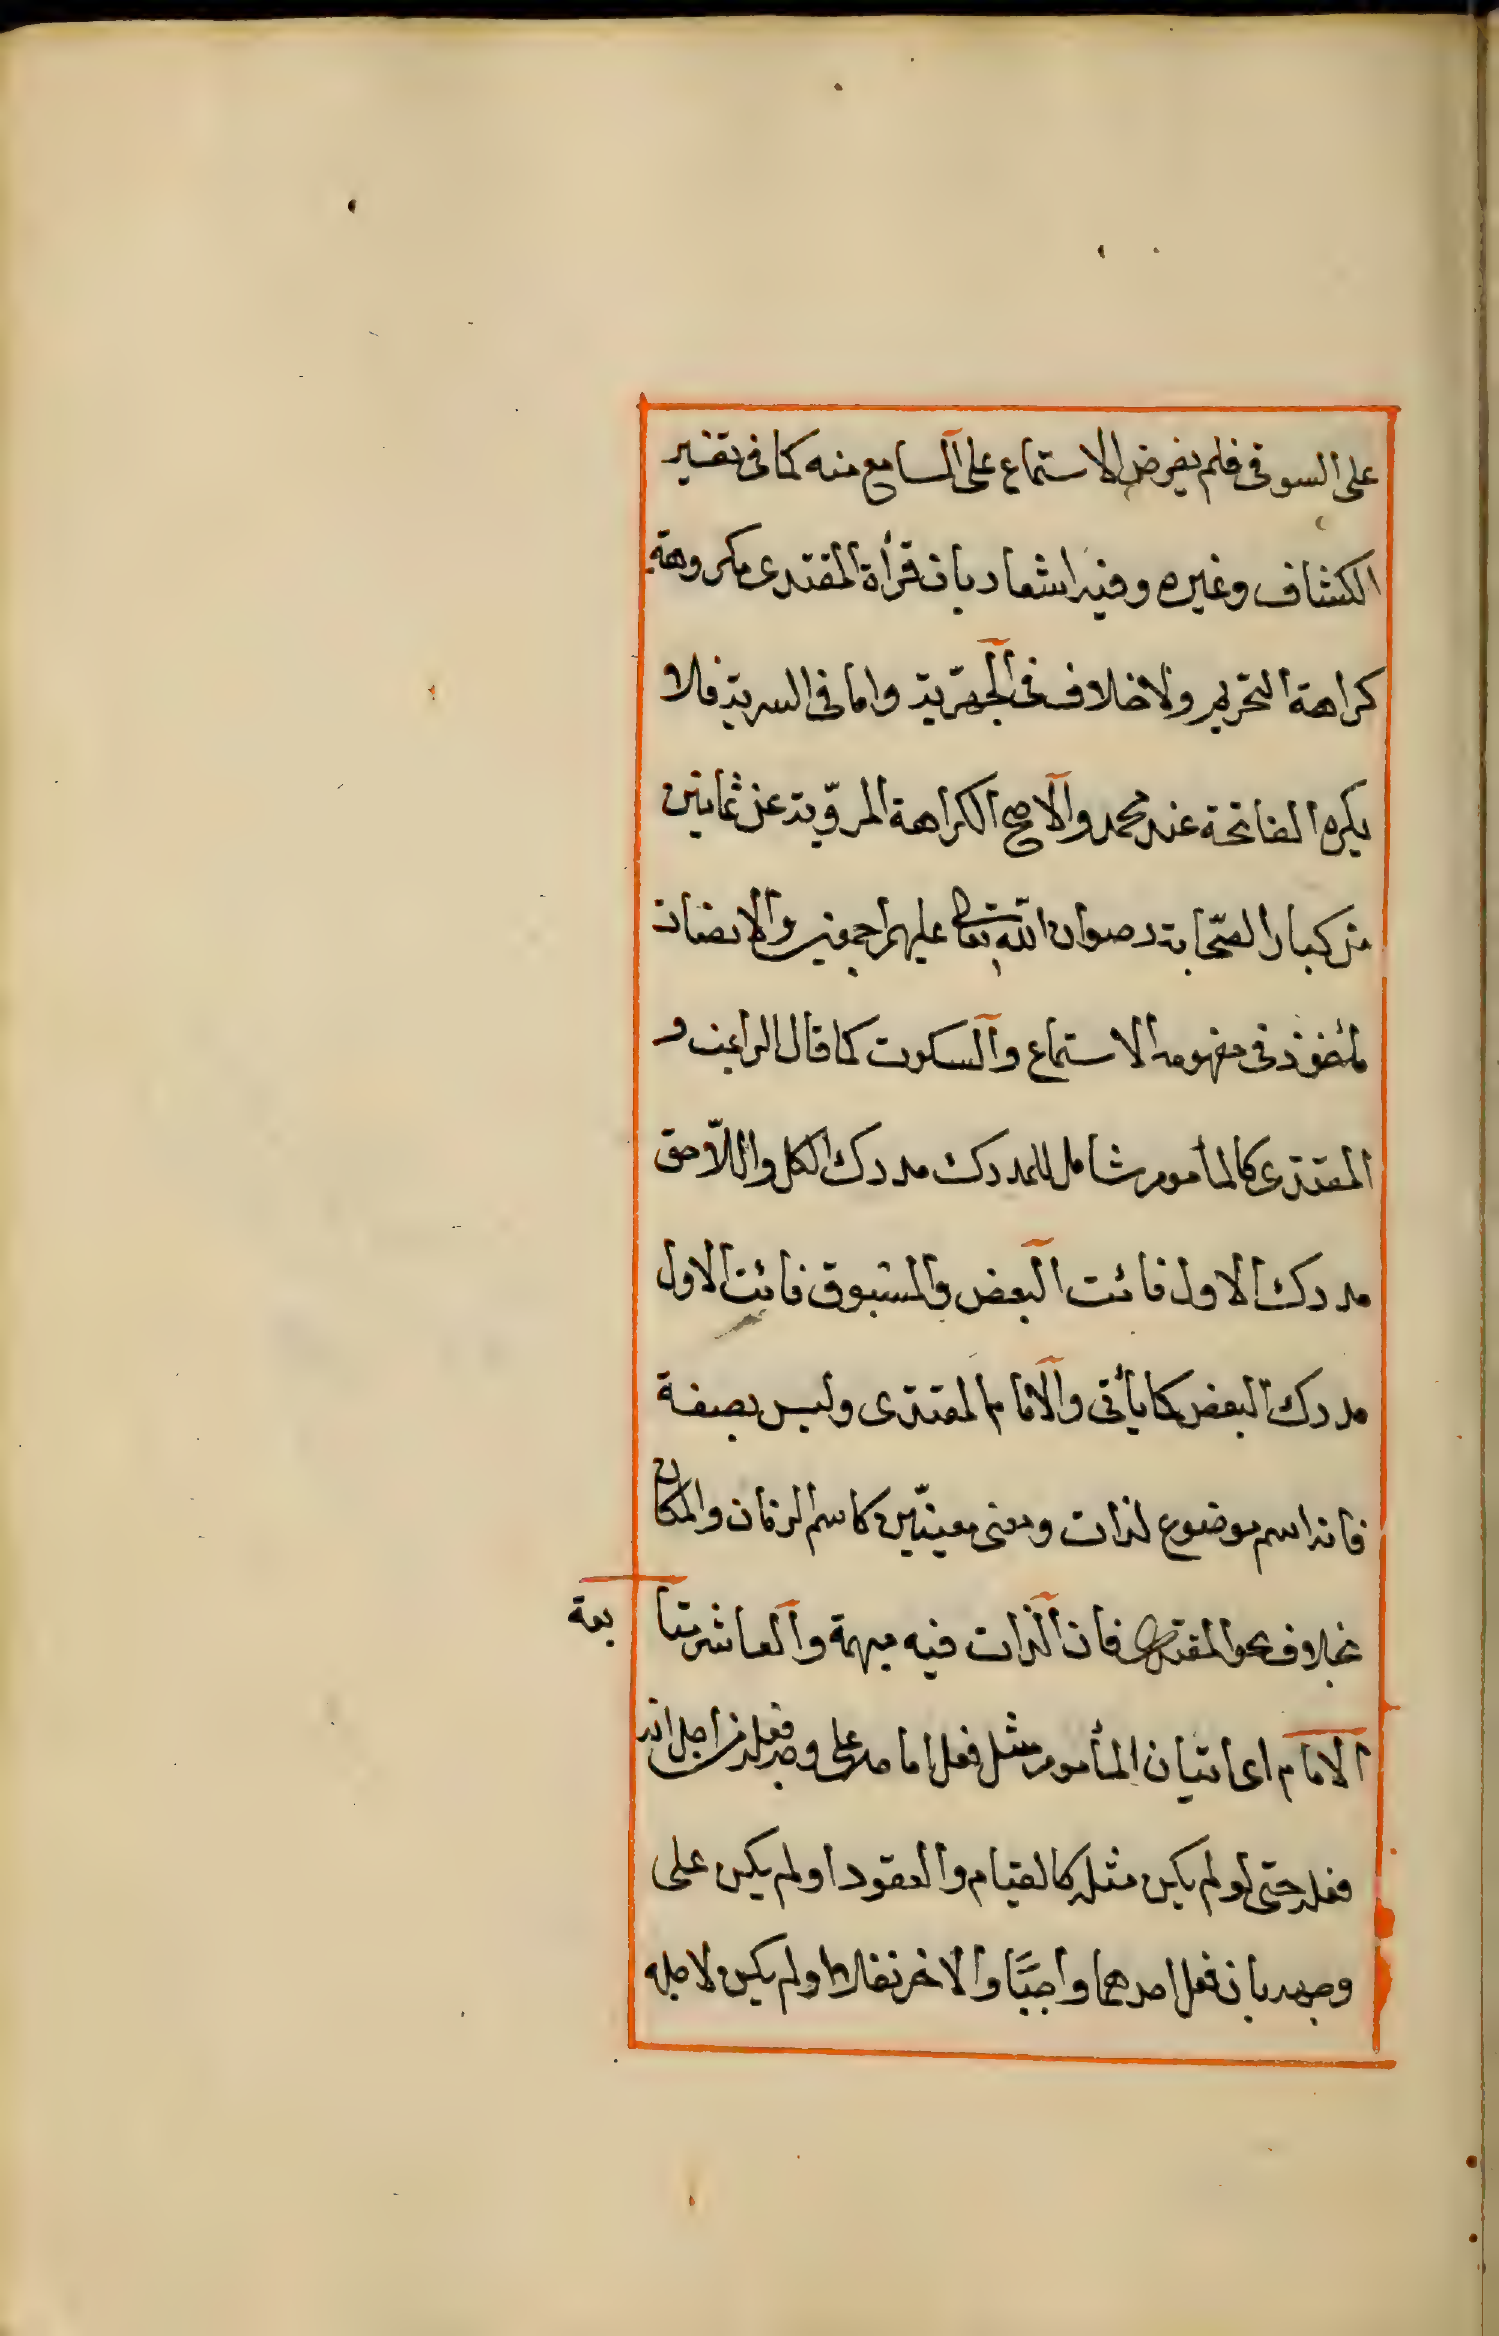 على السوقى فلم يفرض الاستماع على السامع منه كما فى تفسير
الكشاف وغيره وفيه اشعار بان قرأة المقتدى مكروهة
كراهة التحريم ولا خلاف فى الجهرية واما فى السرية فلا
يكره الفاتحة عند محمد والاصح الكراهة المروية عن ثمانين
من كبار الصحابة رضوان الله تعالى عليهم اجمعين والانصات
مأخوذ فى مفهومه الاستماع والسكوت كما قال الراغب و
المقتدى كالمأموم شامل للمدرك مدرك الكل واللاحق
مدرك الاول فائت البعض والمسبوق فائت الاول
مدرك البعض كما يأتى والامام المقتدى وليس بصفة
فانه اسم موضوع لذات ومعنى معينين كاسم الزمان والمكان
بخلاف نحو المقتدى فان الذات فيه مبهمة والعاشر متا بعة
الامام اى اتيان المأموم مثل فعل امامه على وجه فعله من اجل انه
فعله حتى لو لم يكن مثله كالقيام والقعود او لم يكن على
وجهه بان فعل احدهما واجبًا والاخر نفلا او لم يكن لاجله